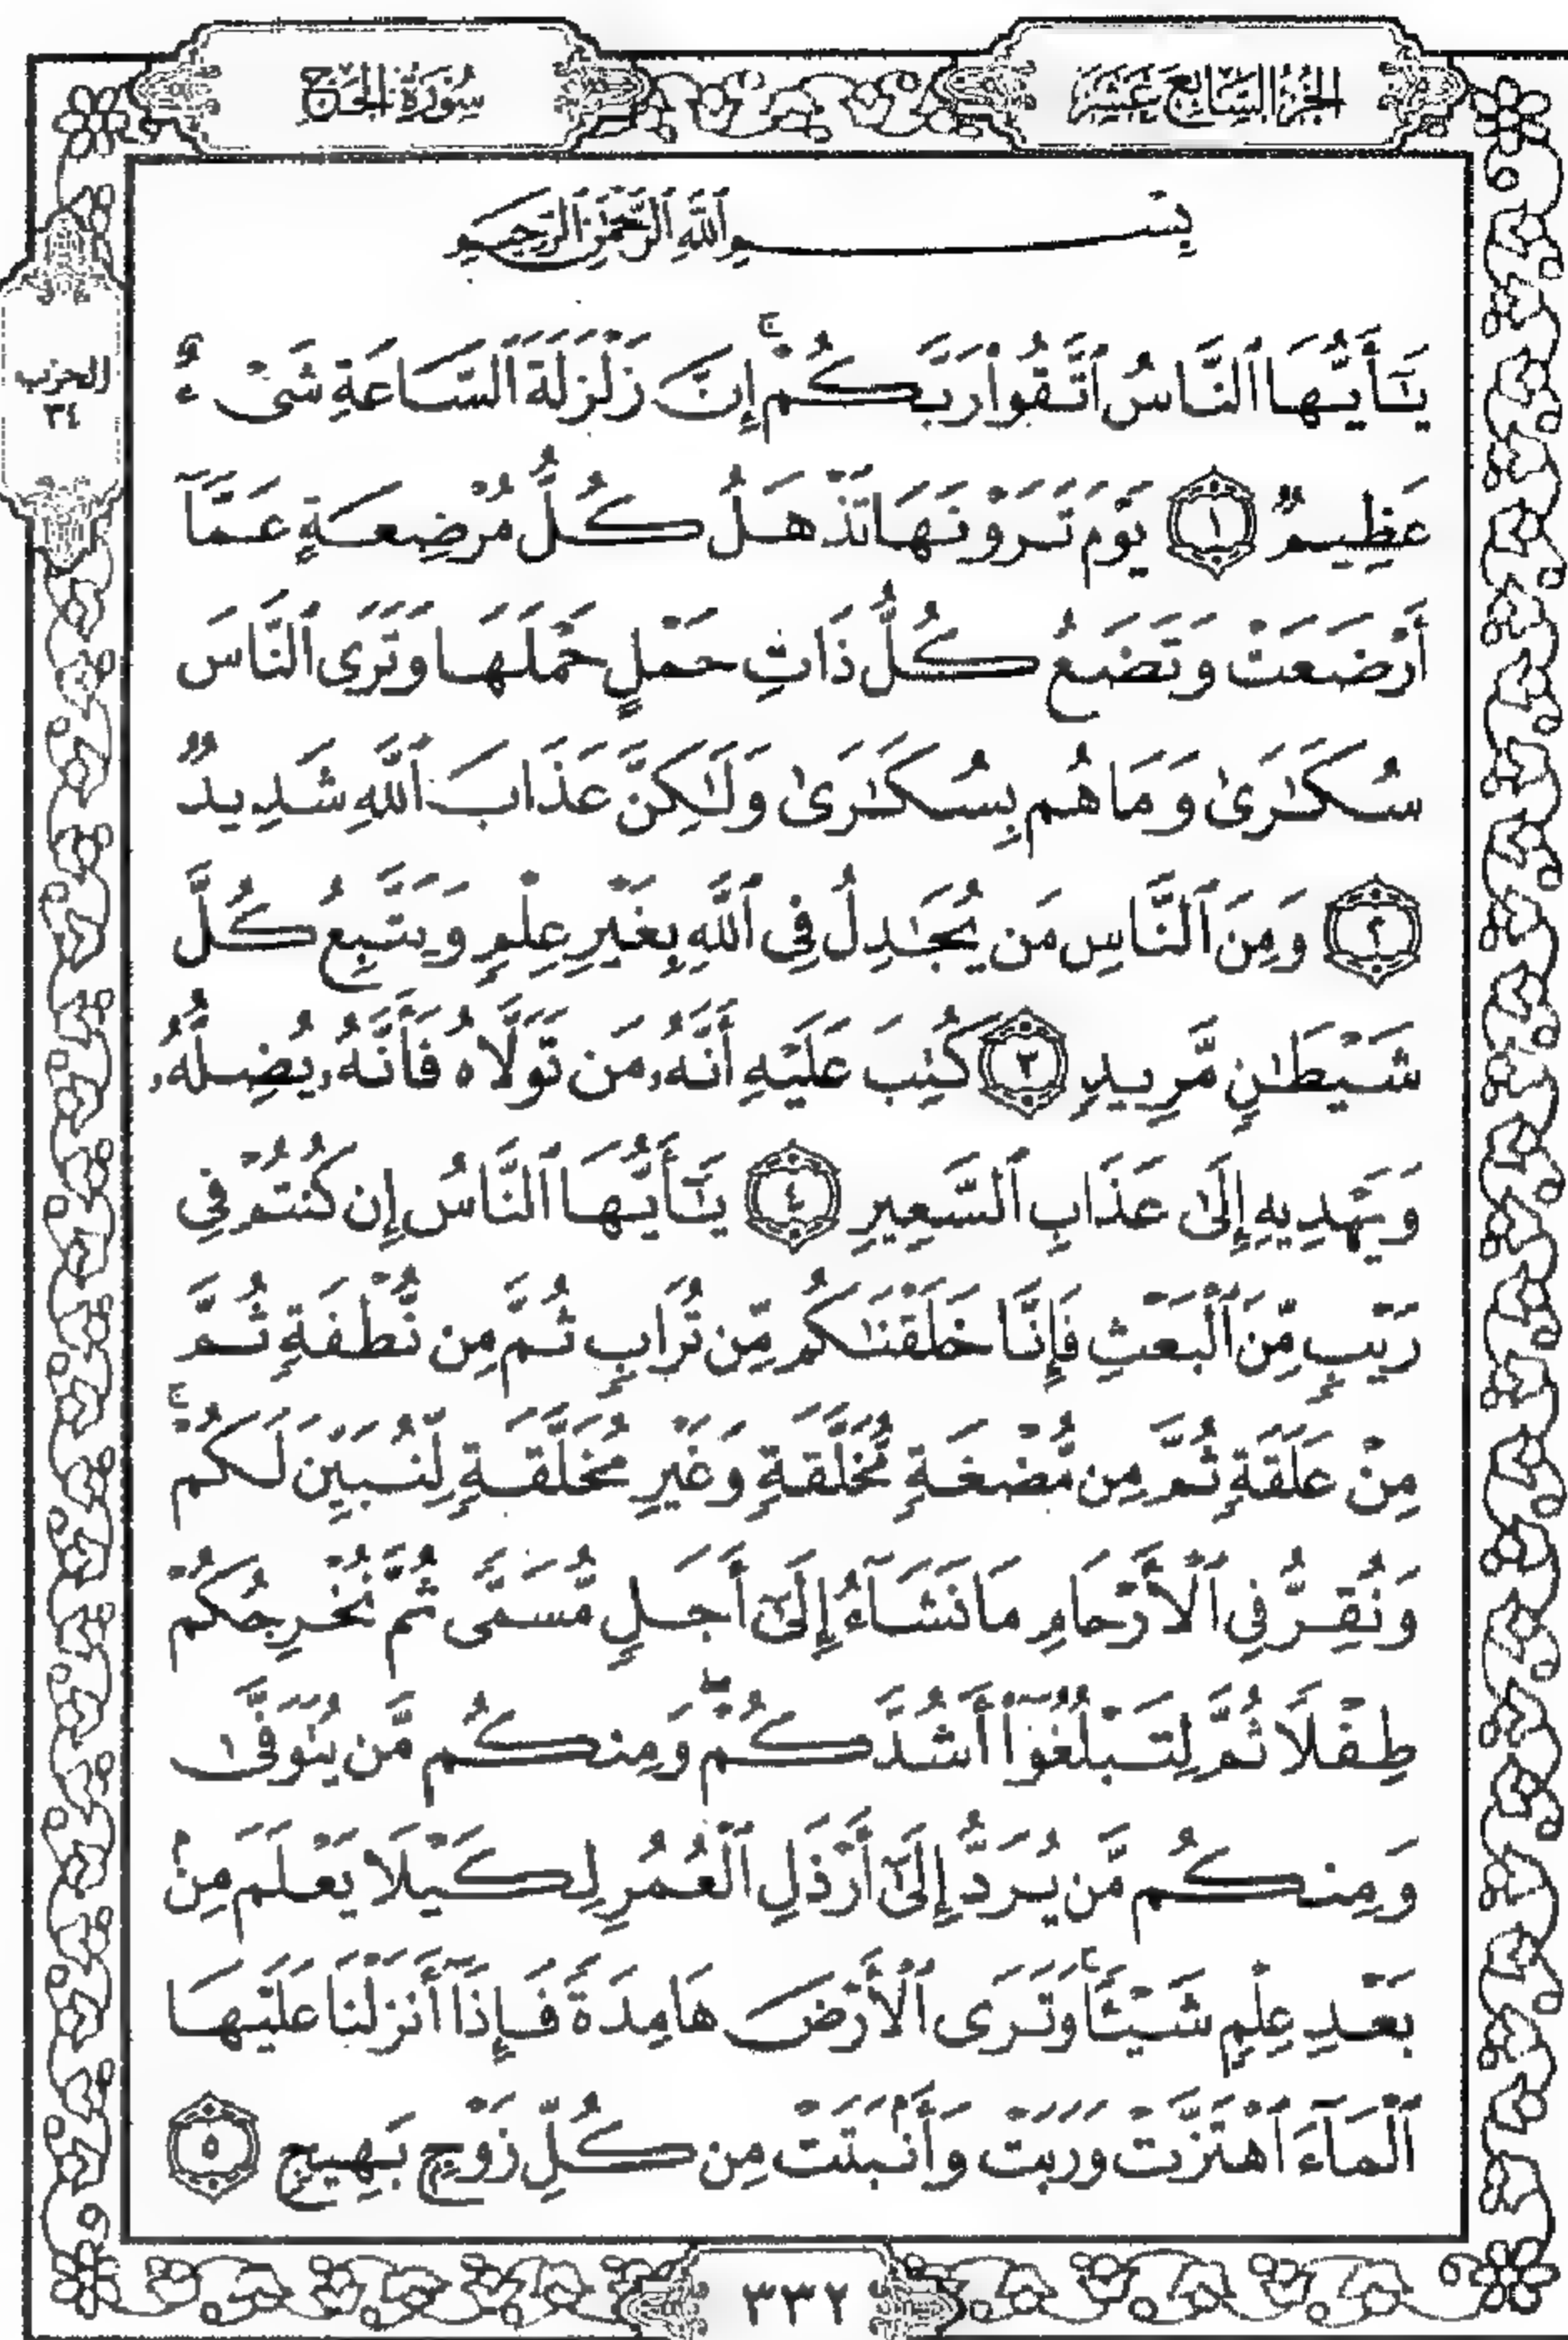 الجزء السابع عشر
سورة الحج
الحزب
٣٤
بِسْمِ ٱللَّهِ ٱلرَّحْمَٰنِ ٱلرَّحِيمِ
يَٰٓأَيُّهَا ٱلنَّاسُ ٱتَّقُوا۟ رَبَّكُمْ ۚ إِنَّ زَلْزَلَةَ ٱلسَّاعَةِ شَىْءٌ
عَظِيمٌ ١ يَوْمَ تَرَوْنَهَا تَذْهَلُ كُلُّ مُرْضِعَةٍ عَمَّآ
أَرْضَعَتْ وَتَضَعُ كُلُّ ذَاتِ حَمْلٍ حَمْلَهَا وَتَرَى ٱلنَّاسَ
سُكَٰرَىٰ وَمَا هُم بِسُكَٰرَىٰ وَلَٰكِنَّ عَذَابَ ٱللَّهِ شَدِيدٌ
٢ وَمِنَ ٱلنَّاسِ مَن يُجَٰدِلُ فِى ٱللَّهِ بِغَيْرِ عِلْمٍ وَيَتَّبِعُ كُلَّ
شَيْطَٰنٍ مَّرِيدٍ ٣ كُتِبَ عَلَيْهِ أَنَّهُۥ مَن تَوَلَّاهُ فَأَنَّهُۥ يُضِلُّهُۥ
وَيَهْدِيهِ إِلَىٰ عَذَابِ ٱلسَّعِيرِ ٤ يَٰٓأَيُّهَا ٱلنَّاسُ إِن كُنتُمْ فِى
رَيْبٍ مِّنَ ٱلْبَعْثِ فَإِنَّا خَلَقْنَٰكُم مِّن تُرَابٍ ثُمَّ مِن نُّطْفَةٍ ثُمَّ
مِنْ عَلَقَةٍ ثُمَّ مِن مُّضْغَةٍ مُّخَلَّقَةٍ وَغَيْرِ مُخَلَّقَةٍ لِّنُبَيِّنَ لَكُمْ ۚ
وَنُقِرُّ فِى ٱلْأَرْحَامِ مَا نَشَآءُ إِلَىٰٓ أَجَلٍ مُّسَمًّى ثُمَّ نُخْرِجُكُمْ
طِفْلًا ثُمَّ لِتَبْلُغُوٓا۟ أَشُدَّكُمْ ۖ وَمِنكُم مَّن يُتَوَفَّىٰ
وَمِنكُم مَّن يُرَدُّ إِلَىٰٓ أَرْذَلِ ٱلْعُمُرِ لِكَيْلَا يَعْلَمَ مِنۢ
بَعْدِ عِلْمٍ شَيْـًٔا ۚ وَتَرَى ٱلْأَرْضَ هَامِدَةً فَإِذَآ أَنزَلْنَا عَلَيْهَا
ٱلْمَآءَ ٱهْتَزَّتْ وَرَبَتْ وَأَنۢبَتَتْ مِن كُلِّ زَوْجٍۭ بَهِيجٍ ٥
٣٣٢